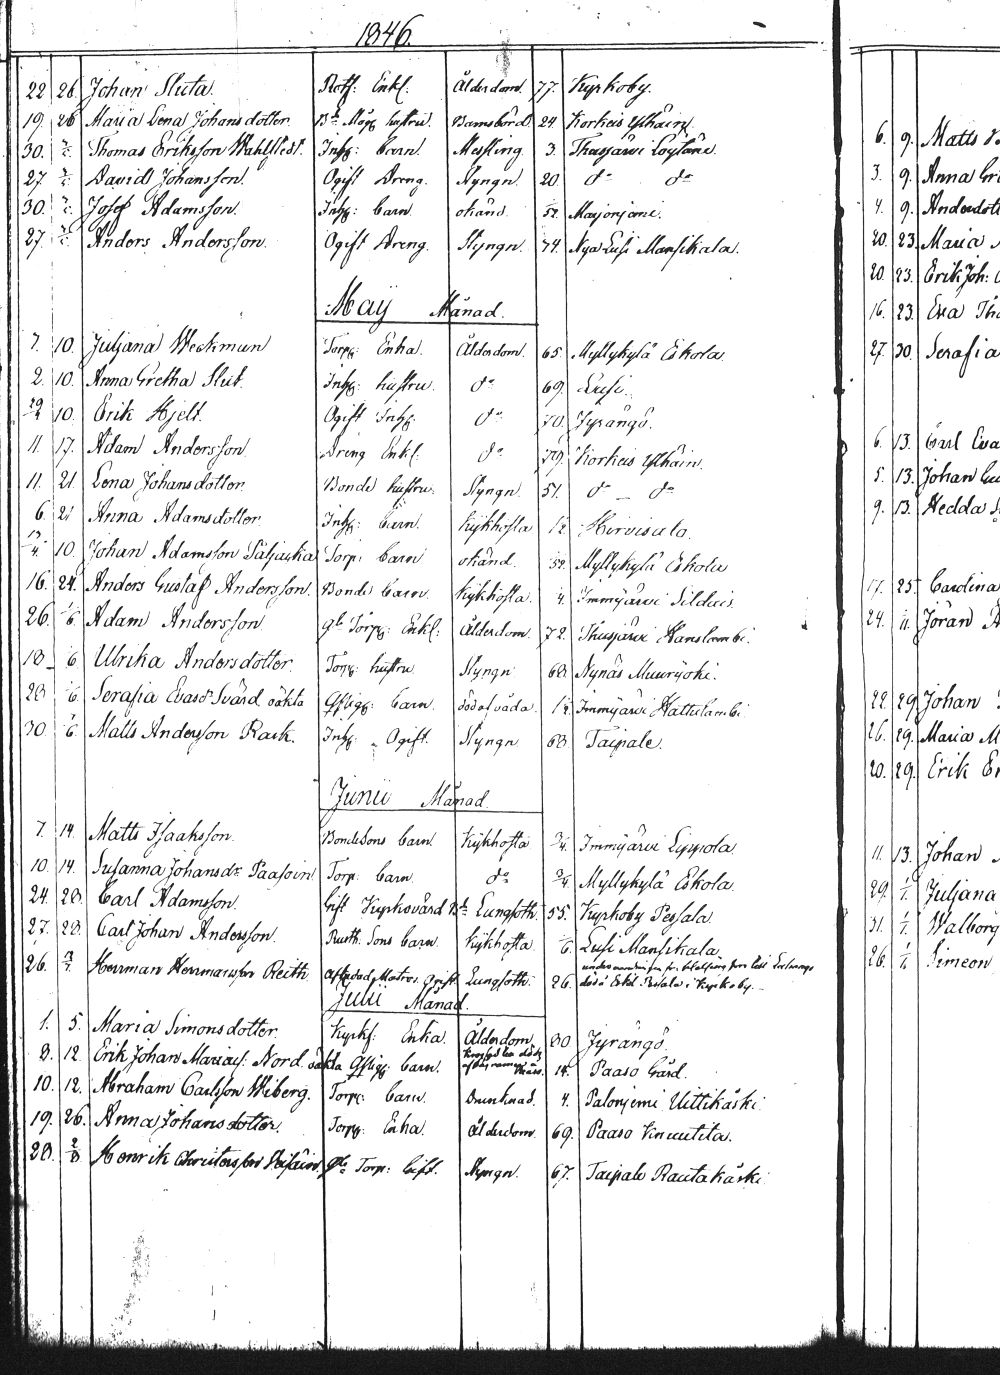 1846.
22 28. Johan Sluta. Rotf: Enkl. Ålderdom. 77. Kyrkoby.
19. 26 Maria Lena Johansdotter. Bde Måg hustru. Barnsbörd. 24. Korkeis Ylhäin.
30. Thomas Eriksson Wahlstedt. Inhs: barn. Messling 3. Thusjärvi Löytäne.
27. David Johansson. Ogift Dreng. Styngn. 20. do do
30. Josef Adamsson. Inhs: barn. okänd. Marjonjemi.
27. Anders Andersson. Ogift Dreng. Styngn. 74. Nya Lusi Mansikala.
Maÿ Månad.
7. 10. Juljana Weckman Torp: Enka. Ålderdom. 65. Myllykylä Eskola.
2. 10. Anna Gretha Slut. Inhs: hustru. do 69. Lusi.
29/4 10. Erik Hjelt. Ogift Inhs do 70. Jyrängö.
11. 17. Adam Andersson Dreng Enkl: do 79. Korkeis Ylhäin.
11. 21. Lena Johansdotter. Bonde hustru. Styngn. 51. do do
6. 21 Anna Adamsdotter. Inhs: barn. Kikhosta 1/2 Hirvisalo.
10. Johan Adamsson Torp: barn okänd. Myllykylä Eskola
16. 24. Anders Gustaf Andersson. Bonde barn. Kikhosta. 4. Immijärvi Sildais.
26. /6. Adam Andersson. gle Torp: Enkl: Ålderdom. 72. Thusjärvi Hanslambi.
18. /6 Ulrika Andersdotter. Torp: hustru Styngn 68. Nynäs Muurijoki.
28 /6. Serafia Evasdr Svärd oäkta Qvsligg: barn. död af våda. 1/2. Immijärvi Hattulambi
30. /6. Matts Andersson Rask. Inhs: Ogift. Styngn 68. Taipale.
Junii Månad.
7. 14. Matts Isaaksson. Bondesons barn. Kikhosta 3/4. Immijärvi Eippola
10. 14. Susanna Johansdr Paasoin Torp: barn. do 3/4. Myllykylä Eskola.
24. 28. Carl Adamsson. Gift Kyrkovärd Bde Lungsoth. 55. Kyrkoby Pessala.
27. 28. Carl Johan Andersson. Rusth. Sons barn. Kikhosta /6. Lusi Mansikala.
26. /7. Herrman Herrmansson Reith afskedad Matros Ogift Lungsoth: 26. död å Eskil Pessala i Kyrkoby.
Julii Månad.
1. 5. Maria Simonsdotter. Kyrks: Enka. Ålderdom. 80 Jyrängö.
8. 12. Erik Johan Mariæs: Nord oäkta Qvsligg: barn. 14. Paaso Gård.
10. 12. Abraham Carlsson Wiberg. Torp: barn. Drunknad. 4. Palonjemi Uittikäski
19. 26. Anna Johansdotter. Torp: Enka. ålderdom 69. Paaso
28. 2/8 Henrik Christersson gle Torp: Gift. Styngn. 67. Taipale Rautakäski
6. 9. Matts
3. 9. Anna Gr
4. 9. Andersdott
20. 23. Maria
20. 23. Erik Joh:
16. 23. Eva Th
27. 30. Serafia
6. 13. Carl Eva
5. 13. Johan Gu
9. 13. Hedda
17. 25. Carolina
24. /11. Jöran
22. 29. Johan
26. 29. Maria M
20. 29. Erik Er
11. 13. Johan
29. 1/1. Juljana
31. 1/1. Walborg
26. 1/1. Simeon